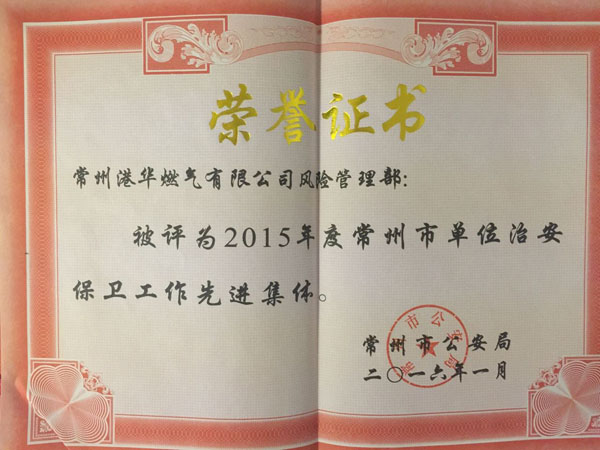 荣誉证书
常州港华燃气有限公司风险管理部：
被评为2015年度常州市单位治安
保卫工作先进集体。
常州市公安局
二〇一六年一月